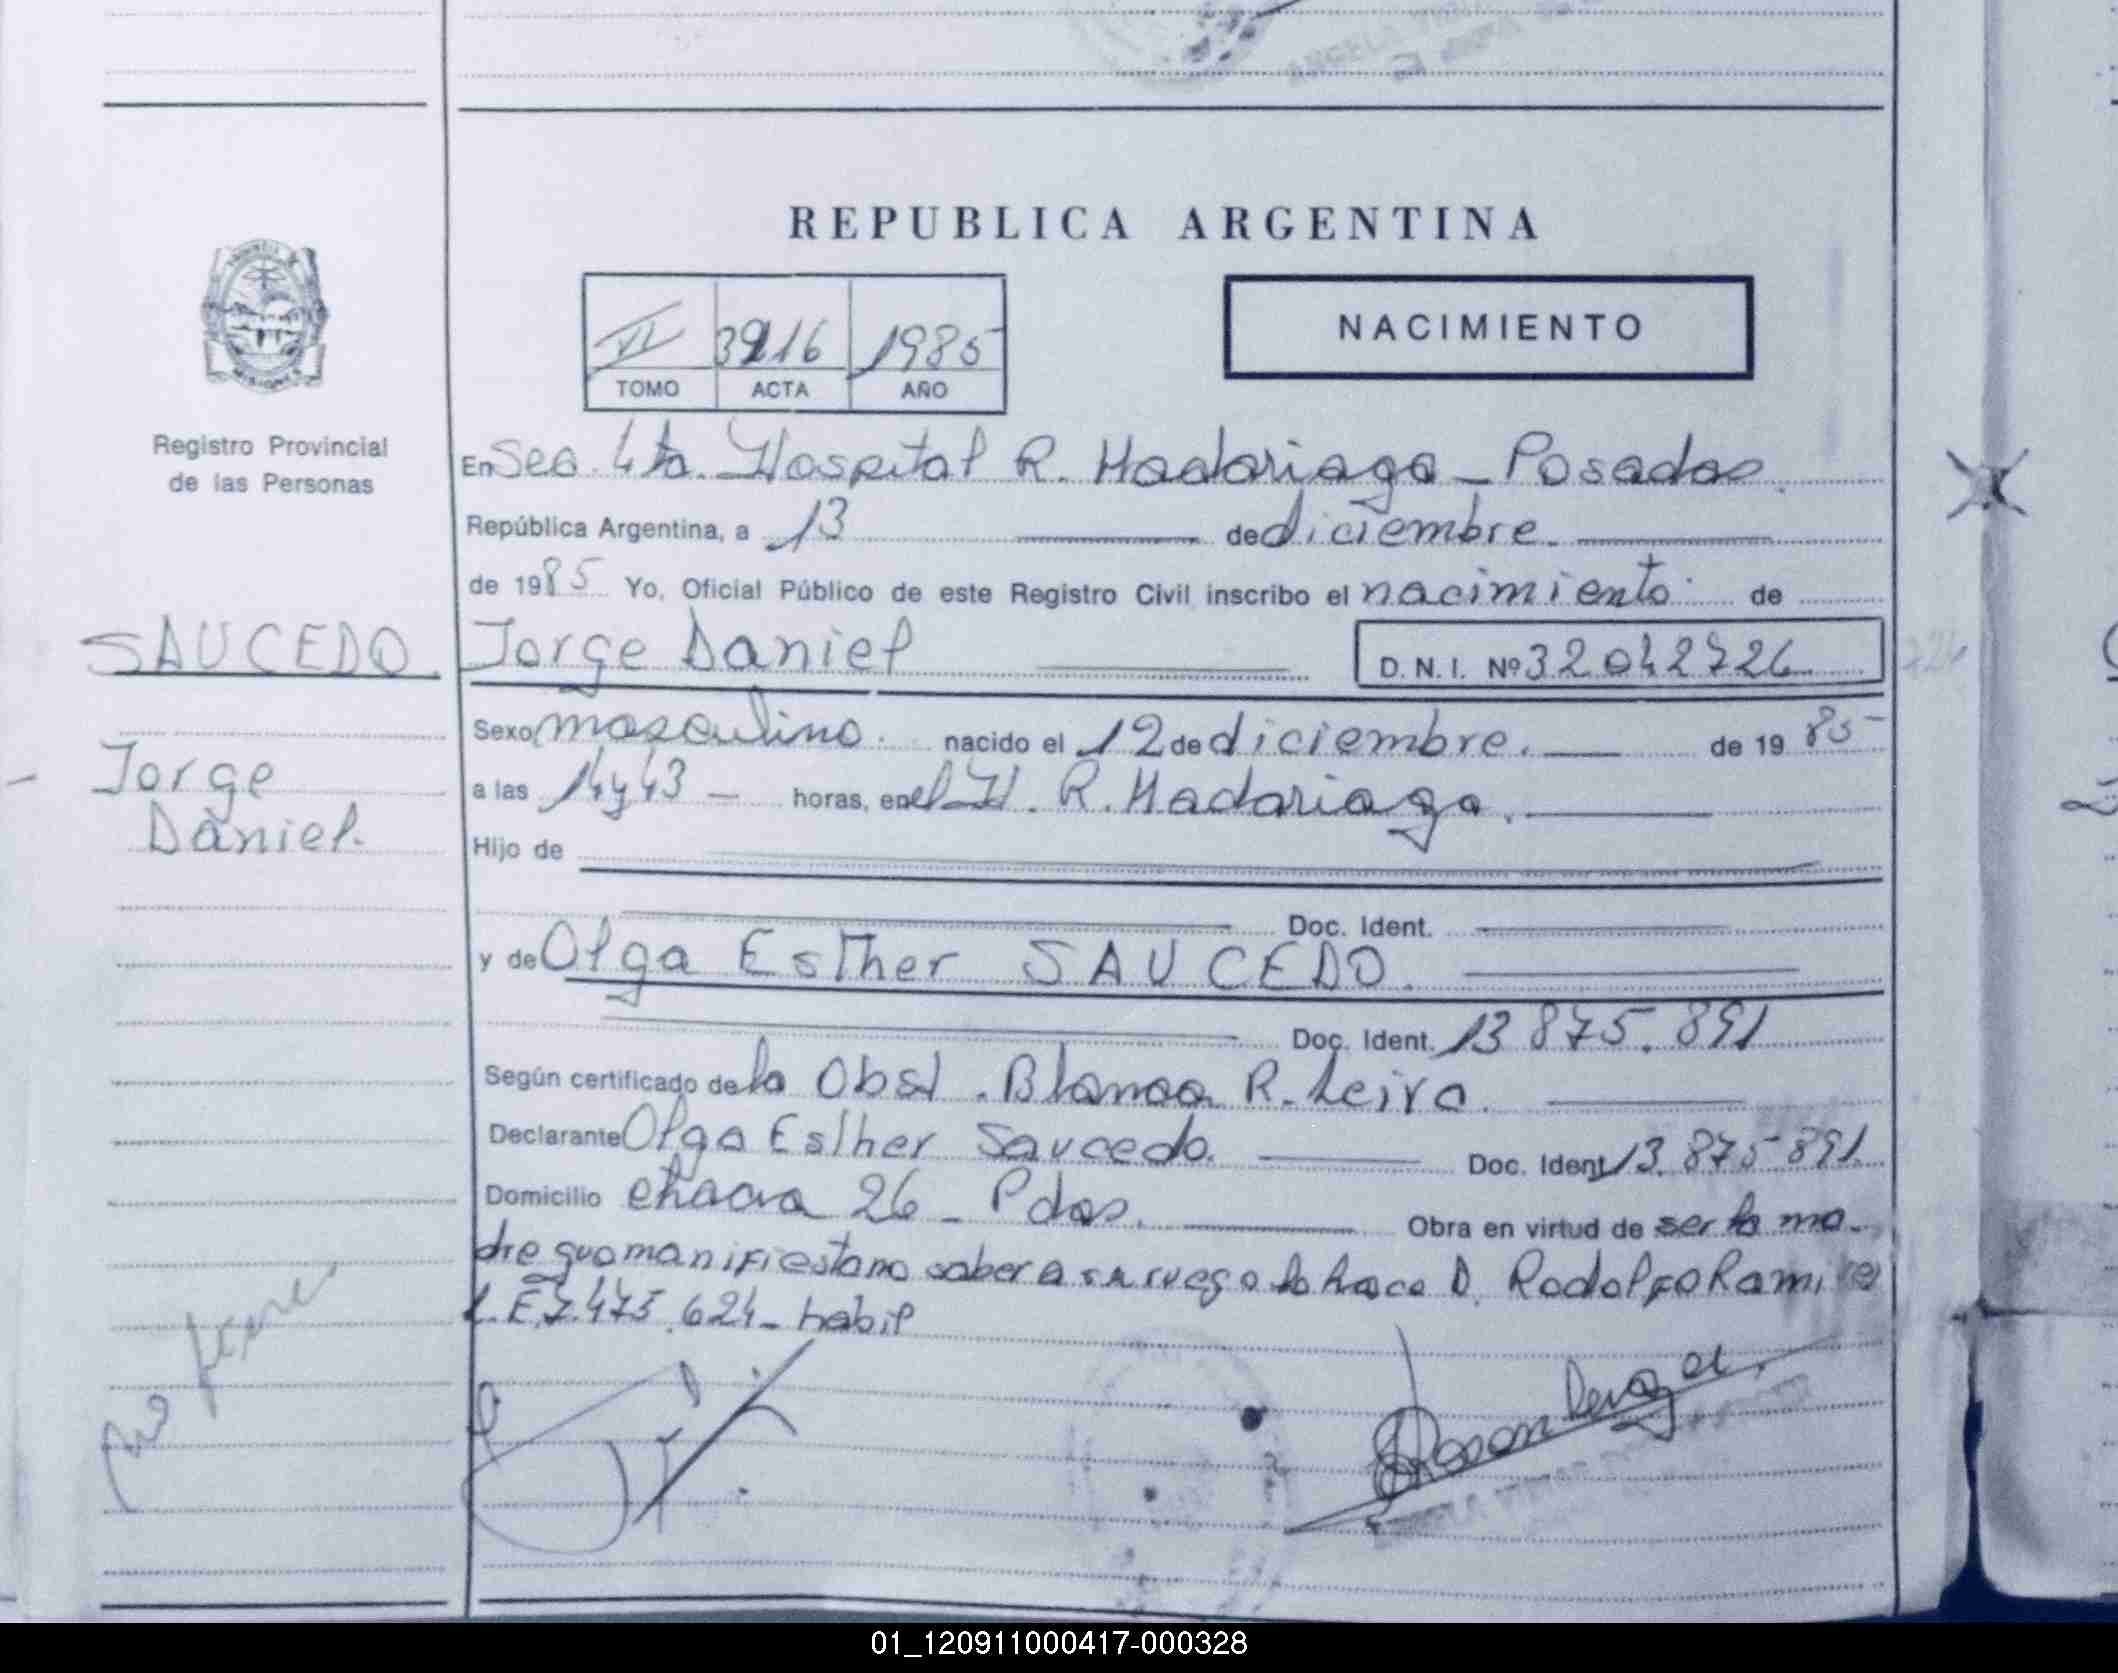 REPUBLICA ARGENTINA
NACIMIENTO
VI 3916 1985
TOMO ACTA AÑO
Registro Provincial
de las Personas
En Sec. 4ta. Hospital R. Madariaga - Posadas.
República Argentina, a 13 de diciembre.
de 1985 Yo, Oficial Público de este Registro Civil inscribo el nacimiento de
SAUCEDO
Jorge Daniel D.N.I. Nº 32042726
Jorge
Daniel.
Sexo masculino. nacido el 12 de diciembre. de 1985
a las 14 y 43 - horas, en el H. R. Madariaga.
Hijo de
Doc. Ident.
y de Olga Esther SAUCEDO.
Doc. Ident. 13 875.891
Según certificado de la Obst. Blanca R. Leiva.
Declarante Olga Esther Saucedo. Doc. Ident 13.875 891.
Domicilio chacra 26 - Pdas. Obra en virtud de ser la ma-
dre quo manifiesta no saber a su ruego lo hace D. Rodolfo Ramirez
L.E 7.475.624 - habil
01_120911000417-000328